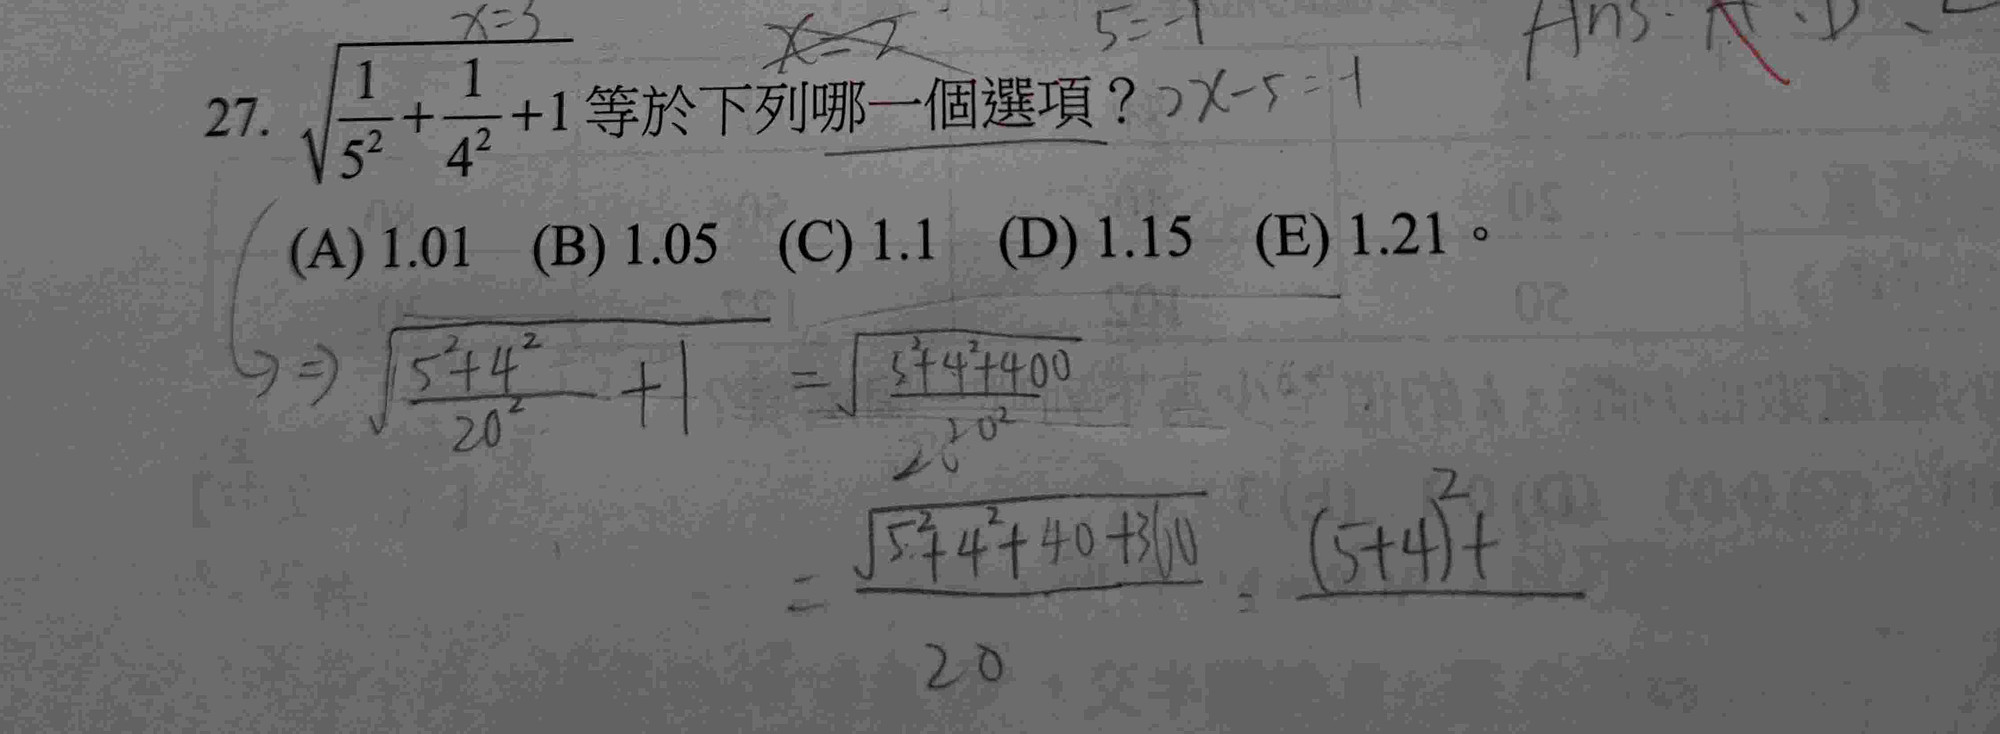 x=3 x=2 5=-1 Ans. A、D、
27. √(1/5² + 1/4² + 1) 等於下列哪一個選項？ x-5=-1
(A) 1.01 (B) 1.05 (C) 1.1 (D) 1.15 (E) 1.21。
⇒ √((5²+4²)/20² + 1) = √((5²+4²+400)/20²)
20
= √(5²+4²+40+360)/20 = (5+4)²+